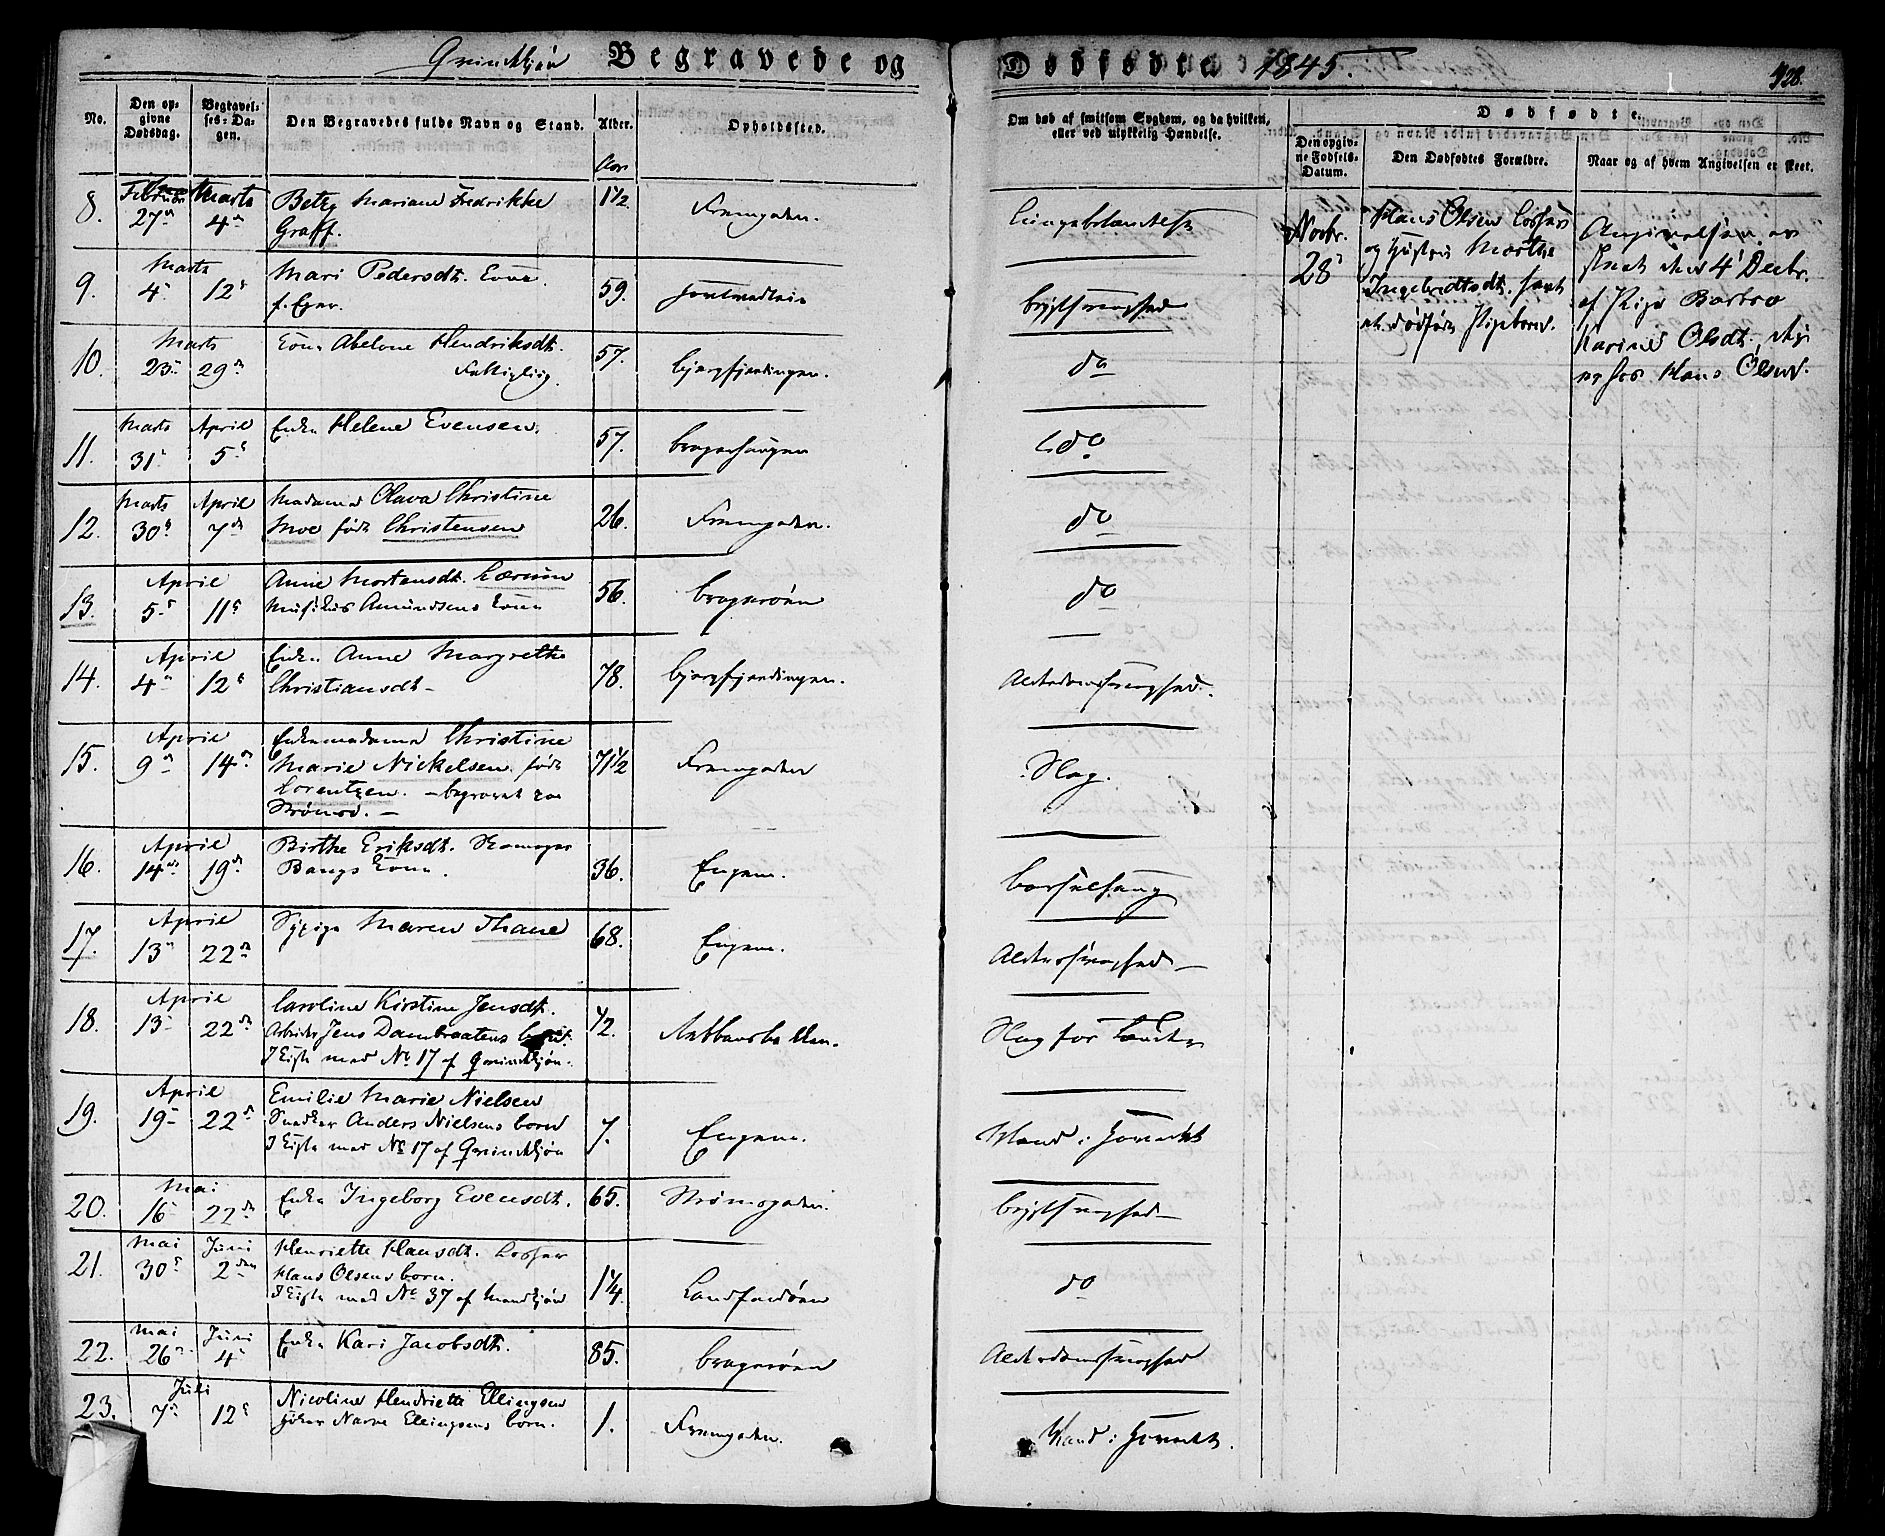 Qvindekjøn Begravede og Dødfødte 1845.
428.
No.
Den opgivne Dødsdag.
Begravelses-Dagen.
Den Begravedes fulde Navn og Stand.
Alder.
Aar
Opholdssted.
Om død af smitsom Sygdom, og da hvilken, eller ved ulykkelig Hændelse.
Dødfødte.
Den opgivne Fødsels-Datum.
Den Dødfødtes Forældre.
Naar og af hvem Angivelsen er skeet.
8. Februar 27de Marts 4de
Betzy Mariane Fredrikke
Graff.
1½
Strømgaden.
Lungebetændelse
9. Marts 4de 12te
Mari Pedersdt. Kone
59.
Brystsvaghed
10. Marts 23de 29de
Kone Abelone Hendriksdt.
Fattiglig.
57.
Bjergfjerdingen.
do
11. Marts 31te April 5te
Enke Helene Evensen.
57.
Bragerhaugen
do
12. Marts 30te April 7de
Madame Olava Christine
Moe født Christensen
26.
Strømgaden.
do
13. April 5te 11te
Anne Mortensdt. Lærum
Musikus Amundsens Kone
56.
Bragerøen
do
14. April 4de 12te
Enke Anne Margrethe
Christiansdt.
78.
Bjergfjerdingen.
Alderdomssvaghed.
15. April 9de 14de
Enkemadame Christine
Marie Nickelsen født
Lorentzen. – begravet paa
Strømsø. –
71½
Strømgaden
Slag.
16. April 14de 19de
Birthe Eriksdt. Skomager
Bangs Kone.
36.
Engene.
Barselseng
17. April 13de 22de
Pige Maren Thane
68.
Engene.
Alderssvaghed –
18. April 13de 22de
Caroline Kirstine Jensdt.
Arbeids. Jens Dambraatens barn.
I Kiste med No 17 af Qvindekjøn.
½.
Slag for Tænder
19. April 19de 22de
Emilie Marie Nielsen
Snedker Anders Nielsens barn
I Kiste med No 17 af Qvindekjøn
7.
Engene.
Vand i Hovedet
20. Mai 16de 22de
Enke Ingeborg Evensdt.
65.
Strømsgaden.
Brystsvaghed –
21. Mai 30te Juni 2den
Henriette Hansdt. Losser
Hans Olsens barn.
I Kiste med No 37 af Mandkjøn
1¼.
Landfaldøen
do
22. Mai 26de Juni 4de
Enke Kari Jacobsdt.
85.
Bragerøen
Alderdomssvaghed
23. Juli 7de 12te
Nicoline Henriette Ellingsen
Narve Ellingsens barn.
1.
Strømgaden.
Vand i Hovedet.
Novbr.
28de
Hans Olsen Losser
og Hustru Marthe
Ingebrethsdt. havt
et dødfødt Pigebarn.
Angivelsen er
skeet den 4de Decbr.
af Pige Barbro
Karine Olsdt.,
hos Hans Olsen.